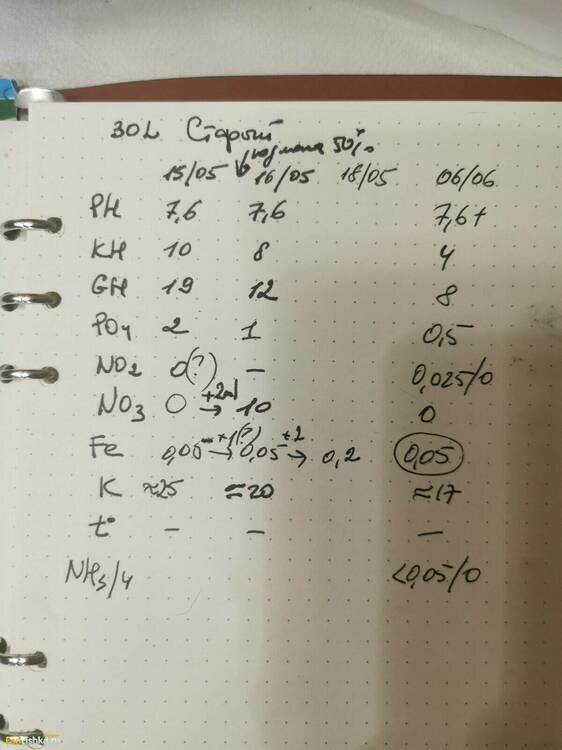 30L Старый
подмена 50%
15/05 16/05 18/05 06/06
PH 7,6 7,6 7,6+
KH 10 8 4
GH 19 12 8
PO4 2 1 0,5
NO2 0(?) – 0,025/0
NO3 0 +2ml → 10 0
Fe 0,05 +1(?) → 0,05 +2 → 0,2 0,05
K ≈25 ≈20 ≈17
t° – – –
NH3/4 <0,05/0